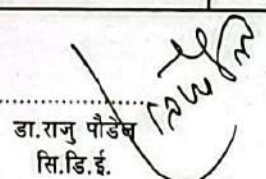 डा.राजु पौडेल
सि.डि.ई.